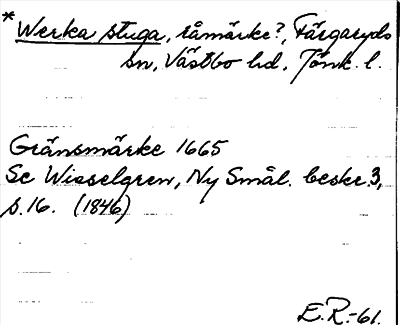 *Werka stuga, råmärke?, Färgaryds
sn, Västbo hd, Jönk. l.
Gränsmärke 1665
Se Wieselgren, Ny Smål. beskr. 3,
s. 16. (1846)
E.R.-61.